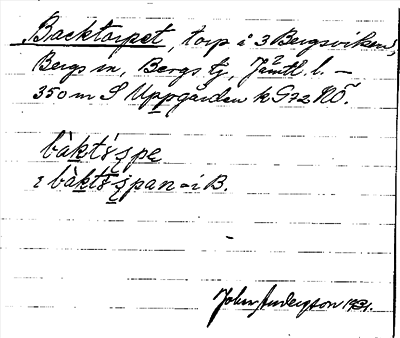 Backtorpet, torp å 3 Bergsviken,
Bergs sn, Bergs tj, Jämtl. l. —
350 m S Uppgården k G72 NÖ.
bàktɔrpe
i bàktɔrpan = i B.
John Anderzson 1931.